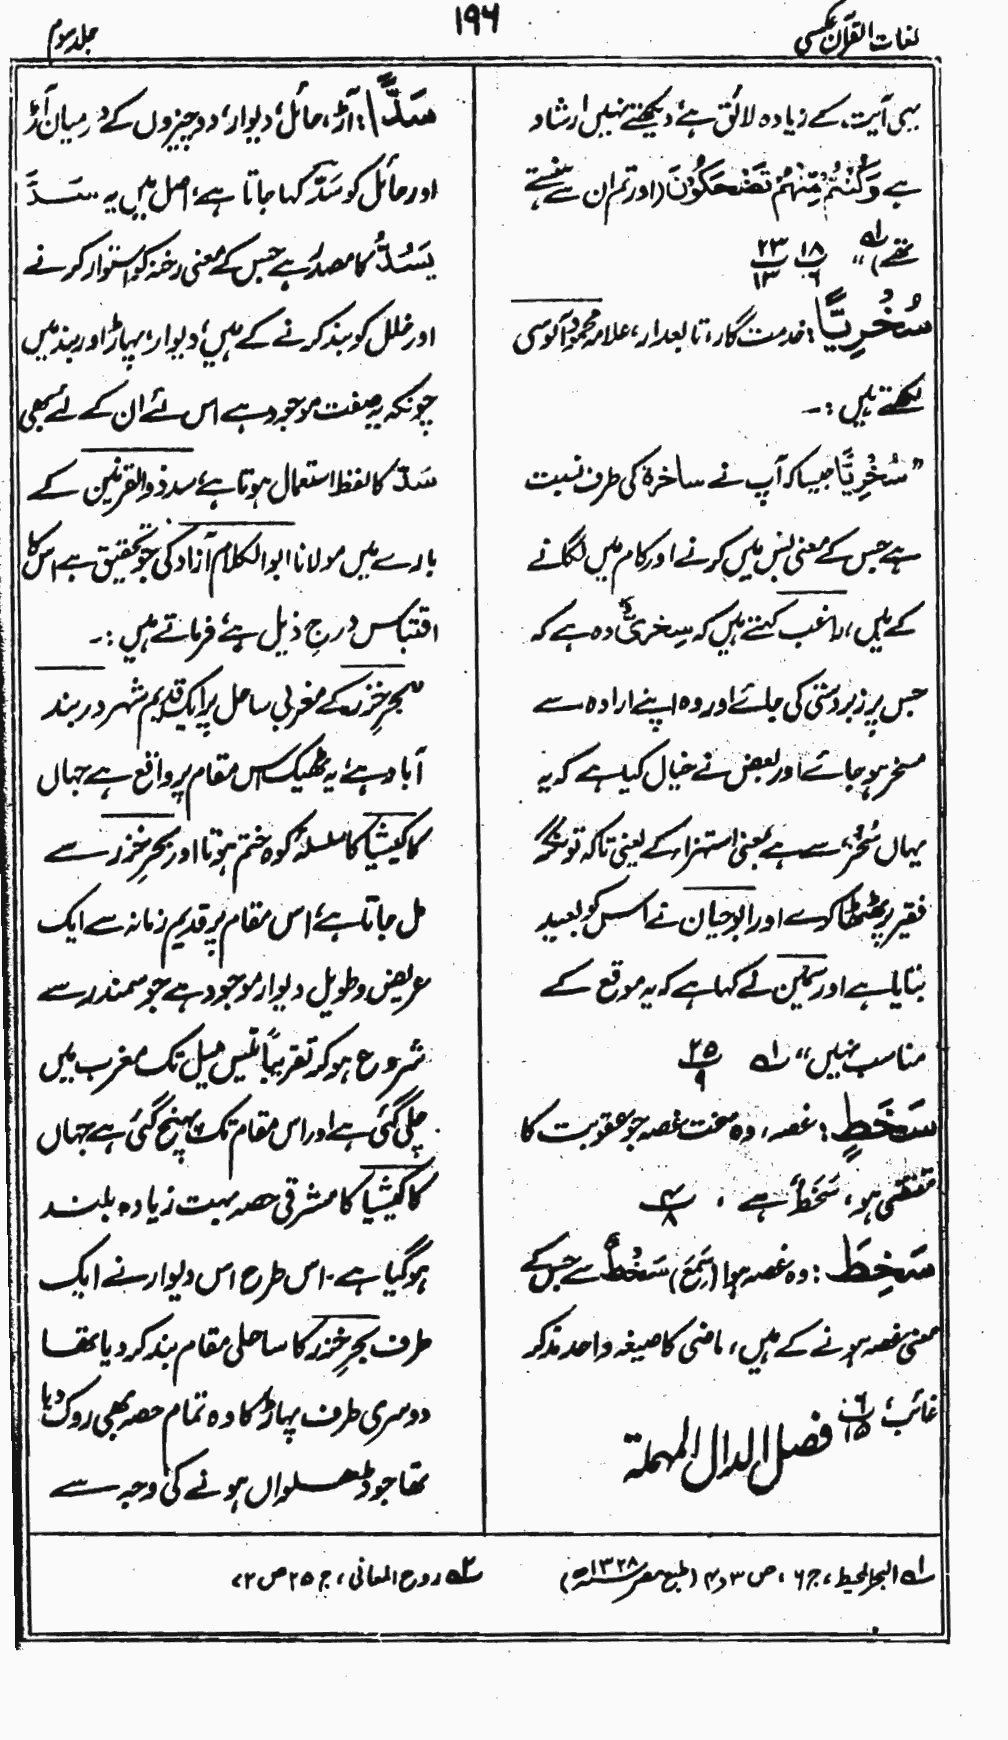 لغات القرآن عکسی
۱۹۶
جلد سوم
یہی آیت، کے زیادہ لائق ہے، دیکھتے نہیں ارشاد
ہے وَكُنْتُمْ مِّنْهُمْ تَضْحَكُوْنَ (اور تم ان سے ہنستے
تھے)،، لہ ۱۸/۶ ۲۳/۱۳
سُخْرِيًّا: خدمت گار، تابعدار، علامہ محمود آلوسی
لکھتے ہیں :۔
”سُخْرِيًّا جیسا کہ آپ نے ساخرۃ کی طرف نسبت
ہے جس کے معنی بس میں کرنے اور کام میں لگانے
کے ہیں، راغب کہتے ہیں کہ سخریّ وہ ہے کہ
جس پر زبردستی کی جائے اور وہ اپنے ارادہ سے
مسخر ہو جائے اور بعض نے خیال کیا ہے کہ یہ
یہاں سُخْر، سے ہے بمعنی استہزاء کے یعنی تاکہ تونگر
فقیر پر ٹھٹھا کرے اور ابوحیان نے اس کو بعید
بتایا ہے اور سمین نے کہا ہے کہ یہ موقع کے
مناسب نہیں،، لہ ۲۵/۹
سَخَطٍ: غصہ، وہ سخت غصہ جو عقوبت کا
مقتضی ہو، سَخَطٌ ہے، ۴/۸
سَخِطَ: وہ غصہ ہوا (سَمِعَ) سَخَطٌ سے جس کے
معنی غصہ ہونے کے ہیں، ماضی کا صیغہ واحد مذکر
غائب، ۶/۱۵
فصل الدال المہملۃ
سَدًّا: آڑ، حائل، دیوار، دو چیزوں کے درمیان آڑ
اور حائل کو سَدّ کہا جاتا ہے، اصل میں یہ سَدَّ
یَسُدُّ کا مصدر ہے جس کے معنی رخنہ کو استوار کرنے
اور خلل کو بند کرنے کے ہیں، دیوار، پہاڑ اور بند میں
چونکہ یہ صفت موجود ہے اس لئے ان کے لئے بھی
سَدّ کا لفظ استعمال ہوتا ہے، سد ذوالقرنین کے
بارے میں مولانا ابوالکلام آزاد کی جو تحقیق ہے اس کا
اقتباس درج ذیل ہے، فرماتے ہیں :۔
”بحرِ خزر کے مغربی ساحل پر ایک قدیم شہر دربند
آباد ہے، یہ ٹھیک اس مقام پر واقع ہے جہاں
کاکیشیا کا سلسلۂ کوہ ختم ہوتا اور بحرِ خزر سے
مل جاتا ہے، اس مقام پر قدیم زمانہ سے ایک
عریض و طویل دیوار موجود ہے جو سمندر سے
شروع ہو کر تقریباً تیس میل تک مغرب میں
چلی گئی ہے اور اس مقام تک پہنچ گئی ہے جہاں
کاکیشیا کا مشرقی حصہ بہت زیادہ بلند
ہو گیا ہے۔ اس طرح اس دیوار نے ایک
طرف بحرِ خزر کا ساحلی مقام بند کر دیا تھا
دوسری طرف پہاڑ کا وہ تمام حصہ بھی روک دیا
تھا جو ڈھلواں ہونے کی وجہ سے
لہ البحر المحیط، ج ۶، ص ۳ و ۴ (طبع مصر ۱۳۲۸ھ)
۲ہ روح المعانی، ج ۲۵ ص ۷۲